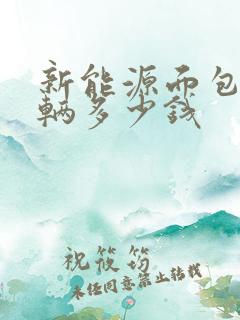 新能源面包
辆多少钱
祝筱筠
未经同意禁止转载